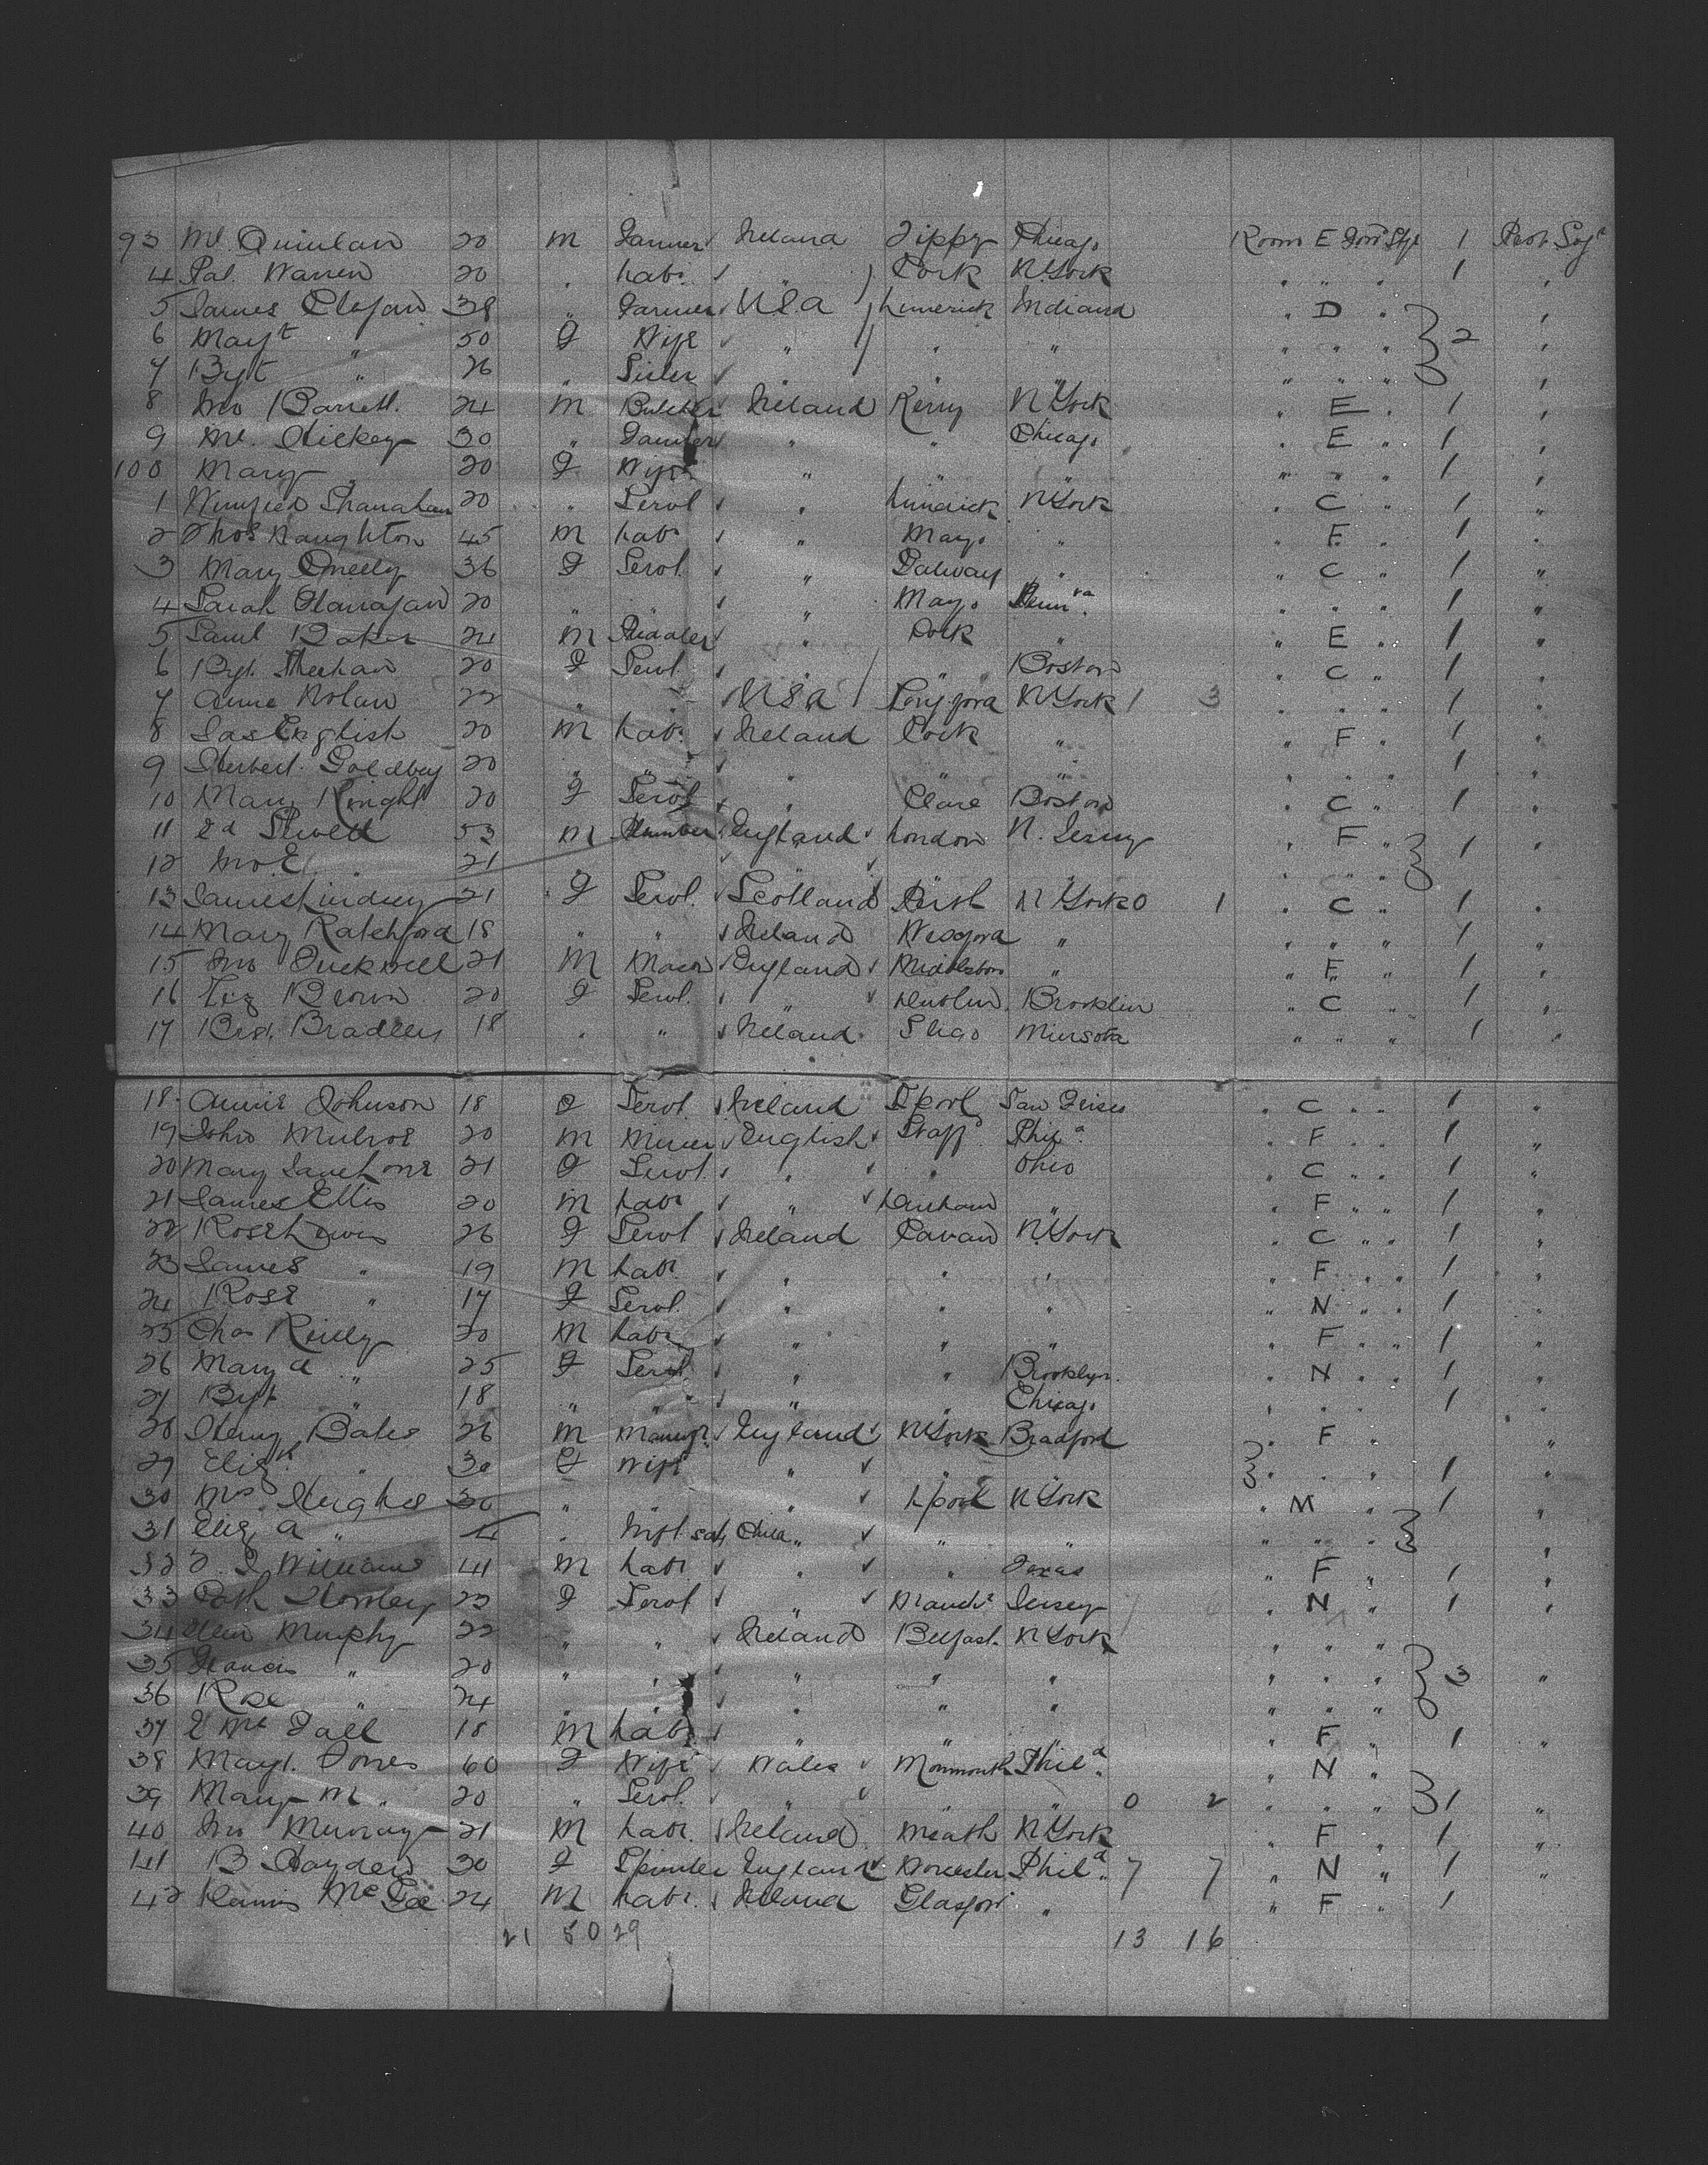 93 Ml. Quinlan 20 M Farmer Ireland Tippy Chicago Room E Forwd Stge 1 Prot Sogr
4 Pat. Warren 20 " Labr " Cork N. York " " " 1 "
5 James Clefford 38 " Farmer U.S.A Limerick Indiana " D " "
6 Mayt " 50 F Wife " " " " " " 2 "
7 Bgt " 26 " Sister " " " " " " "
8 Jno Barrett 24 M Butcher Ireland Kerry N York " E " 1 "
9 Ml. Hickey 30 " Farmer " " Chicago " E " 1 "
100 Mary " 20 F Wife " " " " " " 1 "
1 Winifred Shanahan 20 " Servt " Limerick N York " C " 1 "
2 Thos Naughton 45 M Labr " Mayo " " F " 1 "
3 Mary 36 F Servt " Galway " " C " 1 "
4 Sarah Flanagan 20 " " " Mayo Pennva " " " 1 "
5 Saml Baker 24 M " Cork " " E " 1 "
6 Bgt. Sheehan 20 F Servt " " Boston " C " 1 "
7 Anne Nolan 22 " " U.S.A Longford N York 1 3 " " " 1 "
8 Jas English 20 M Labr Ireland Cork " " F " 1 "
9 Herbert 20 " " " " " " " " 1 "
10 Mary Knight 20 F Servt " Clare Boston " C " 1 "
11 Ed Sewell 53 M Plumber England London N. Jersey " F " 1 "
12 Jno. E. " 21 " " "
13 James Lindsey 21 F Servt. Scotland Perth N York 0 1 " C " 1 "
14 Mary Ratchford 18 " " Ireland Wexford " " " " 1 "
15 Jno Duckwell 21 M Mason England Middlsboro " " F " 1 "
16 Liz Brown 20 F Servt. " Dublin Brooklin " C " 1 "
17 Bgt. Bradley 18 " " Ireland Sligo Minsota " " " 1 "
18 Annie Johnson 18 F Servt. Ireland Lpool San Frisco " C " " 1 "
19 John Mulroe 20 M Miner English Staffd Phila " F " " 1 "
20 Mary Jane 21 F Servt. " " Ohio " C " " 1 "
21 James Ellis 20 M Labr " Durham " " F " " 1 "
22 Rose Lewis 26 F Servt Ireland Cavan N. York " C " " 1 "
23 James " 19 M Labr " " " " F " " 1 "
24 Rose " 17 F Servt. " " " " N " " 1 "
25 Chas Reilly 20 M Labr " " " " F " " 1 "
26 Mary A " 25 F Servt " " Brooklyn " N " " 1 "
27 Bgt " 18 " " " " Chicago " " " 1 "
28 Henry Bates 26 M Managr. England N York Bradford " F " "
29 Elizth " 30 F Wife " " " " " " 1 "
30 Mrs Hughes 30 " " " Lpool N York " M " 1 "
31 Eliz A " 4 " Child " " " " " " "
32 Williams 41 M Labr " " Texas " F " 1 "
33 Cath 23 F Servt " Manchr Jersey " N " 1 "
34 Ellen Murphy 22 " " Ireland Belfast N York " " "
35 Francis " 20 " " " " " " " " 3 "
36 Rose " 24 " " " " " " " "
37 E Mc Fall 18 M Labr " " " " F " 1 "
38 Mayt. Jones 60 F Wife Wales Monmouth Phila " N "
39 Mary M " 20 " Servt. " " " 0 2 " " " 1 "
40 Jno Murray 21 M Labr. Ireland Meath N York " F " 1 "
41 B Hayden 30 F Spinster England Worcester Phila. 7 7 " N " 1 "
42 Dennis McGee 24 M Labr. Ireland Glasgow " " F " 1
21 50 29 13 16